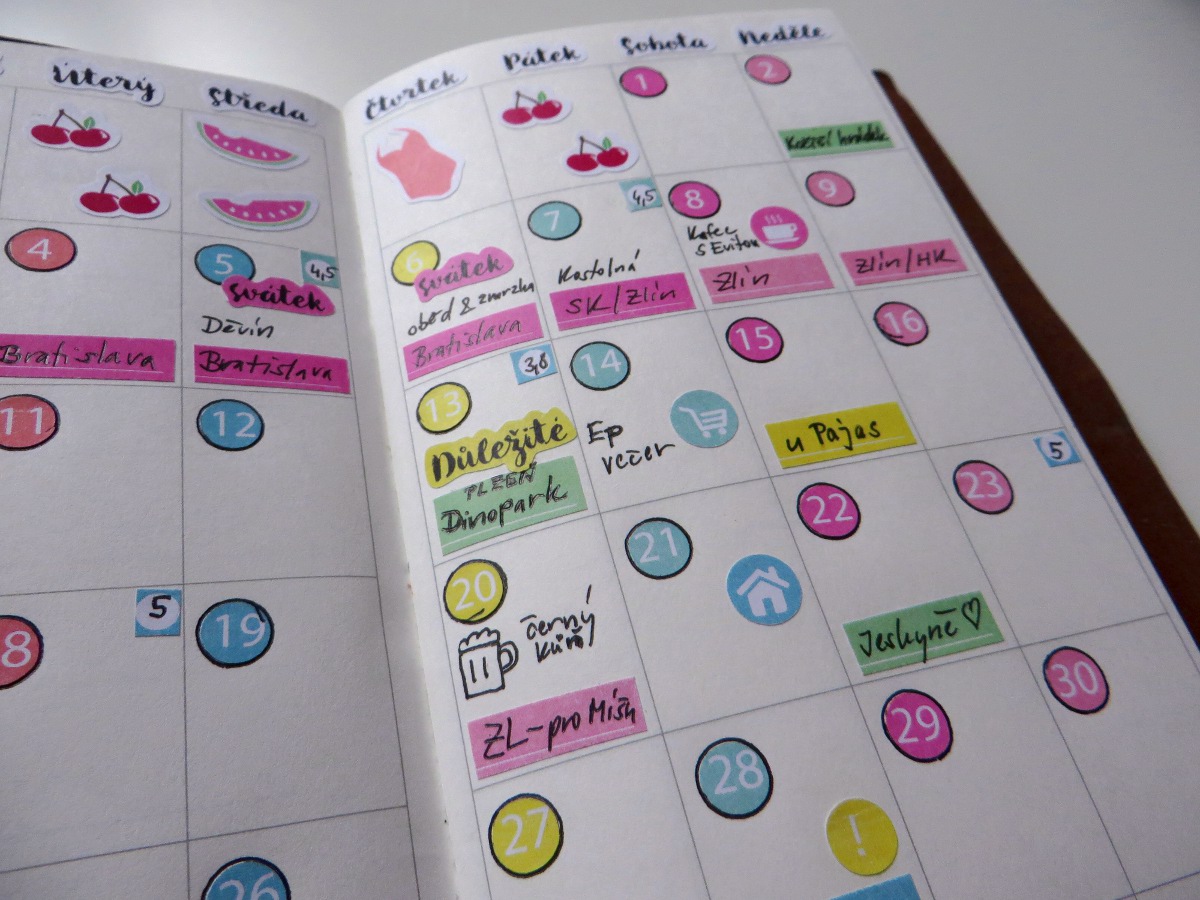 Úterý
Středa
Čtvrtek
Pátek
Sobota
Neděle
1
2
Kozzí hrádek
4
5
4,5
Svátek
Děvín
Bratislava
Bratislava
6
Svátek
oběd & zmrzka
Bratislava
7
4,5
Kostolná
SK/Zlín
8
Kafec
s Evitou
Zlín
9
Zlín/HK
11
12
13
3,8
Důležité
PLZEŇ
Dinopark
14
Ep
večer
15
u Pajas
16
8
5
19
20
černý
kůň
ZL-pro Míšu
21
22
Jeskyně♡
23
5
26
27
28
!
29
30